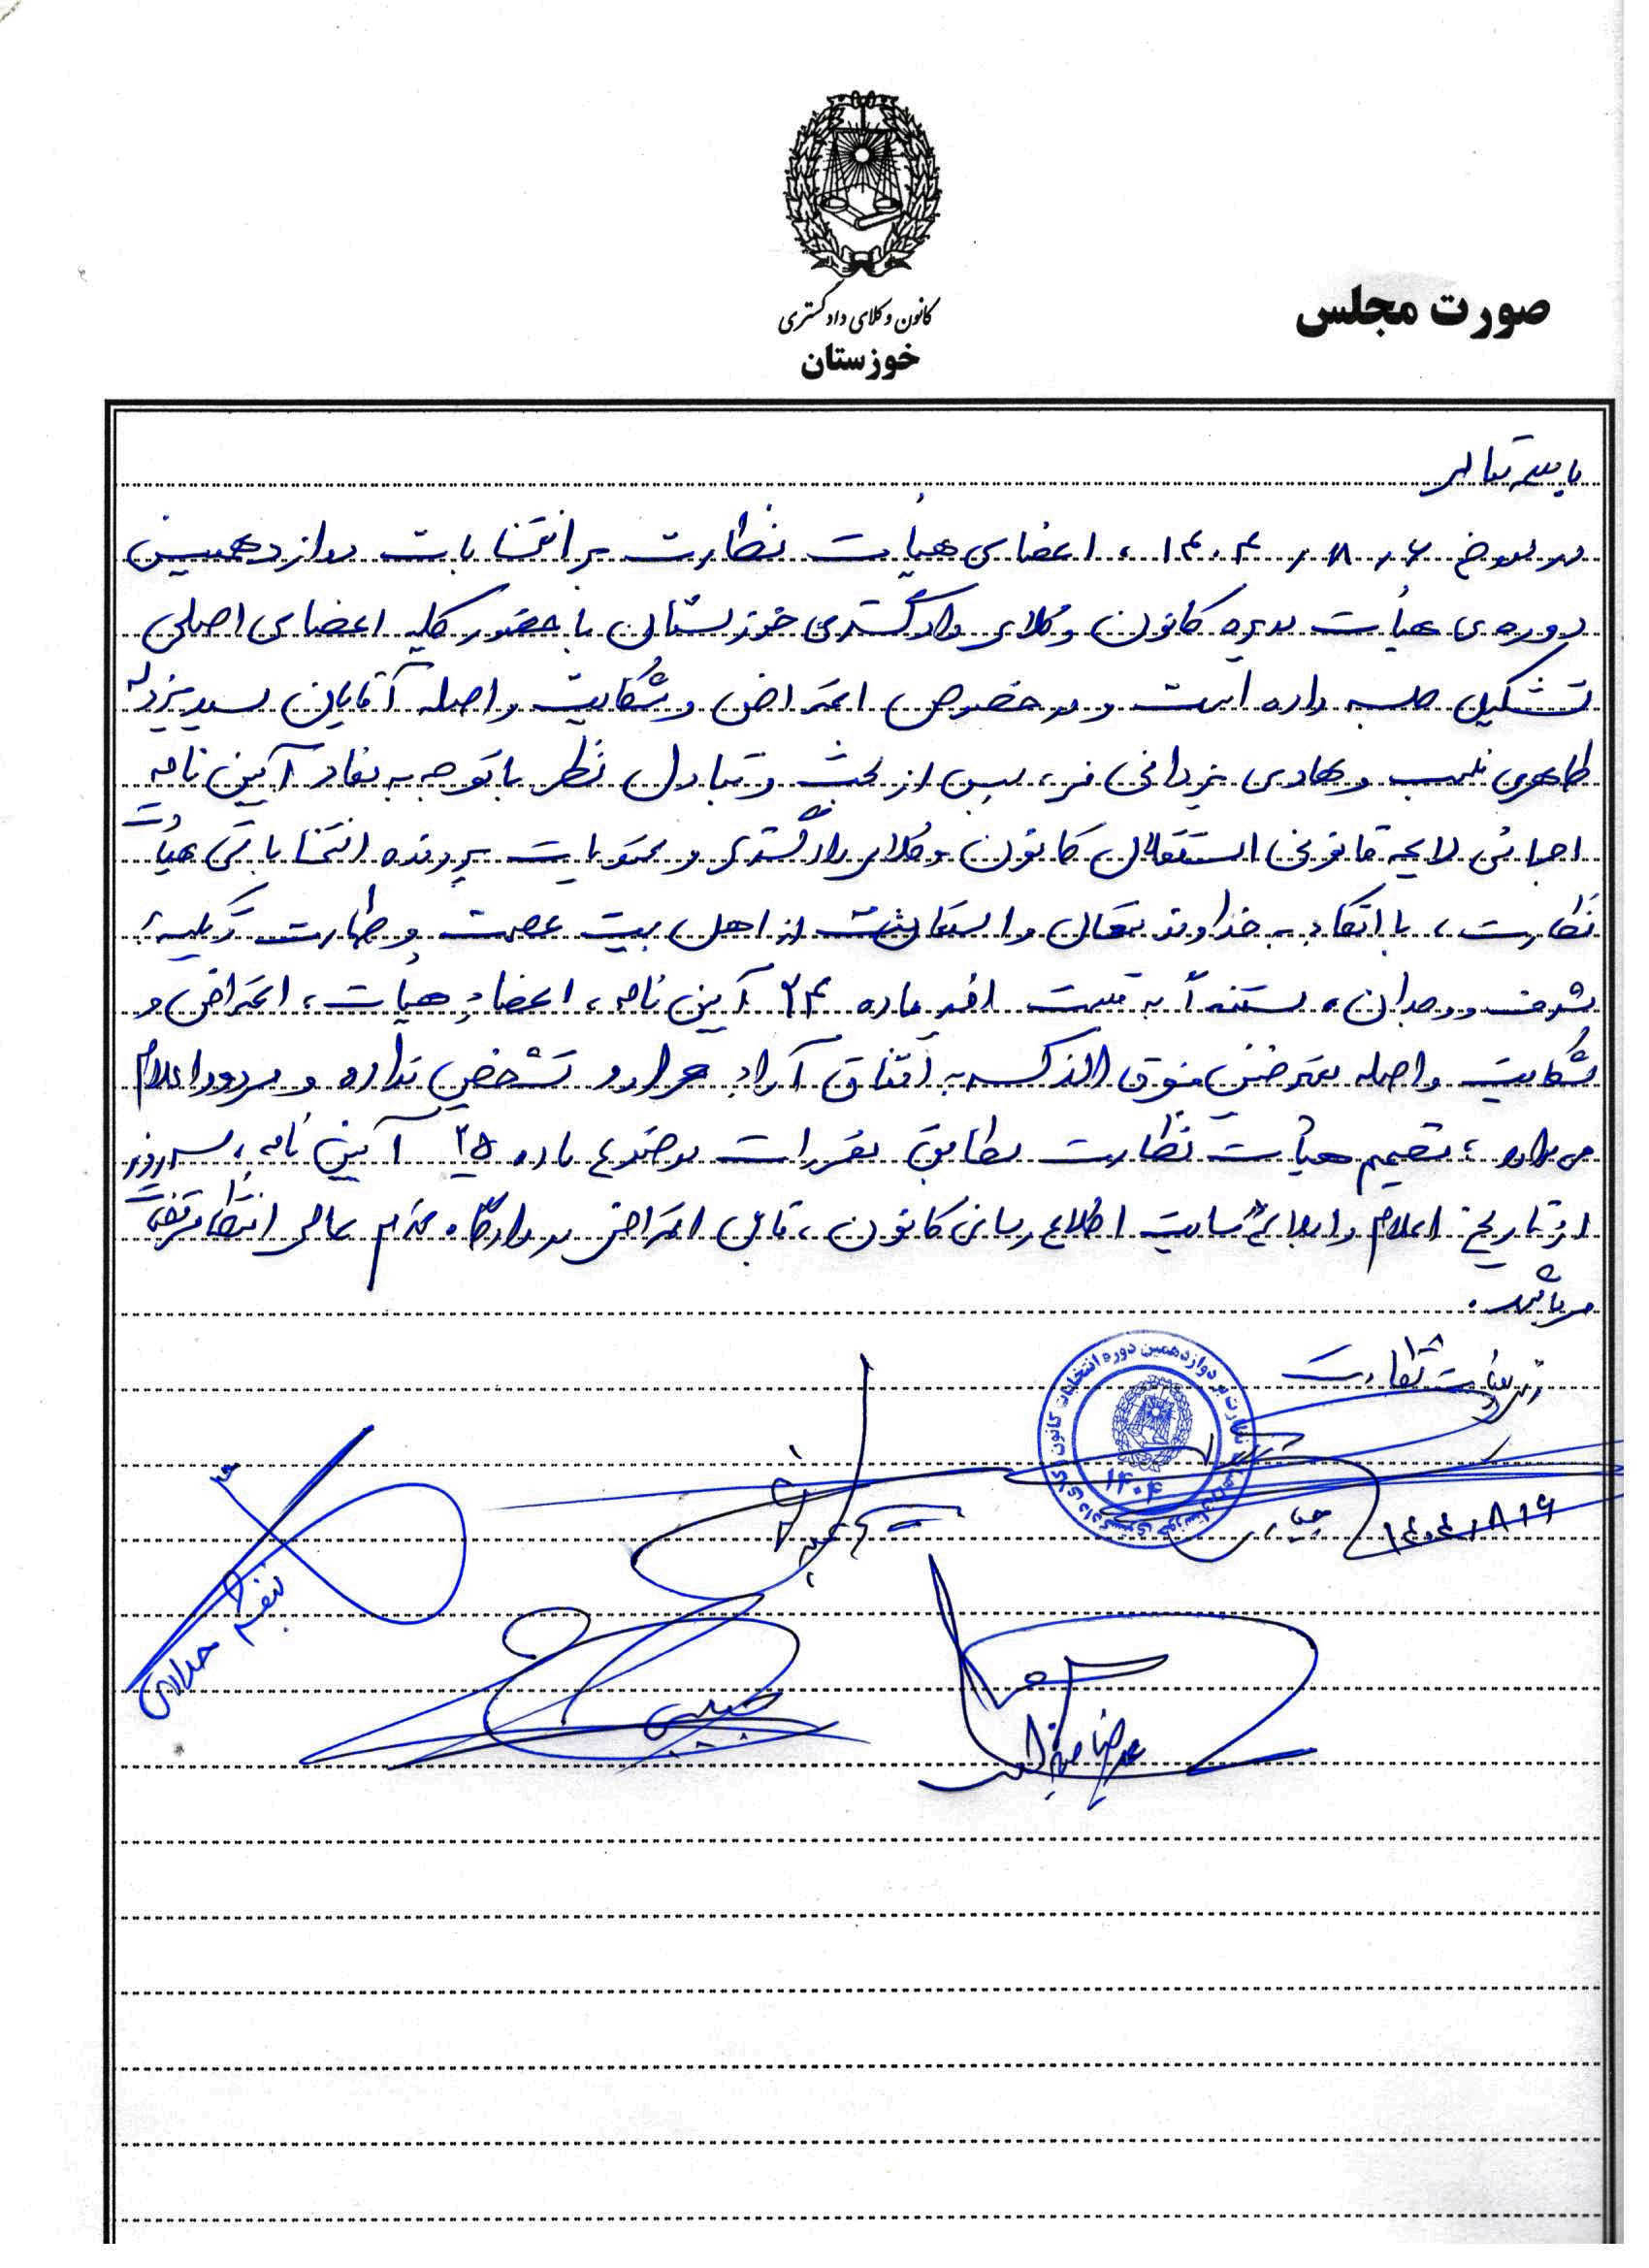 کانون وکلای دادگستری
خوزستان
صورت مجلس
باسمه تعالی
در مورخ ۱۴۰۴/۸/۶ ، اعضای هیأت نظارت بر انتخابات دوازدهمین
دوره ی هیأت مدیره کانون وکلای دادگستری خوزستان با حضور کلیه اعضای اصلی
تشکیل جلسه داده است و در خصوص اعتراض و شکایت واصله آقایان سید یزداله
طاهری نسب و هادی یزدانی فر، پس از بحث و تبادل نظر با توجه به مفاد آیین نامه
اجرائی لایحه قانونی استقلال کانون وکلای دادگستری و محتویات پرونده انتخاباتی هیأت
نظارت، با اتکاء به خداوند متعال و استعانت از اهل بیت عصمت و طهارت
شرف و وجدان، مستنداً به قسمت اخیر ماده ۲۴ آیین نامه، اعضاء هیأت، اعتراض و
شکایت واصله معترضین فوق الذکر به اتفاق آراء وارد تشخیص نداده و مردود اعلام
می دارد ، تصمیم هیأت نظارت مطابق مقررات موضوع ماده ۲۵ آیین نامه، سه روز
از تاریخ اعلام سایت اطلاع رسانی کانون ، قابل اعتراض در دادگاه محترم عالی انتظامی قضات
می باشد.
هیأت نظارت
نظارت بر دوازدهمین دوره انتخابات کانون وکلای دادگستری خوزستان
۱۴۰۴
۱۴۰۴/۸/۶